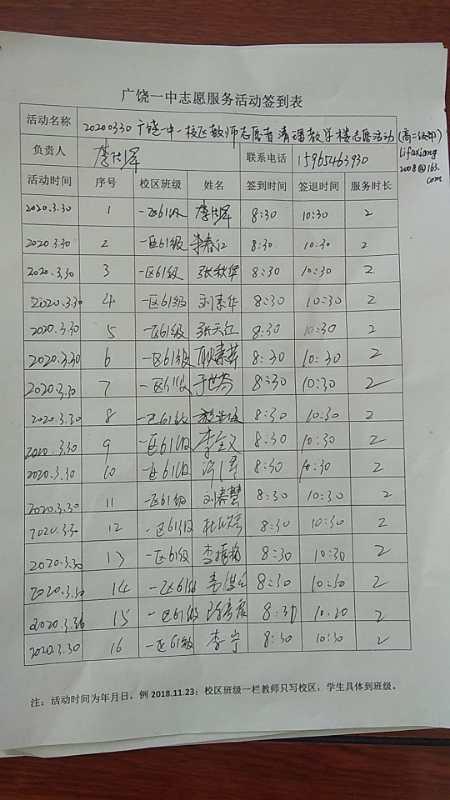 广饶一中志愿服务活动签到表
活动名称 20200330广饶一中一校区教师志愿者清理教学楼志愿活动(高二级部)
负责人 联系电话 15965463930
lifaxiang
2008@163.
com
活动时间 序号 校区班级 姓名 签到时间 签退时间 服务时长
2020.3.30 1 一区61级 8:30 10:30 2
2020.3.30 2 一区61级 8:30 10:30 2
2020.3.30 3 一区61级 张秋华 8:30 10:30 2
2020.3.30 4 一区61级 刘素华 8:30 10:30 2
2020.3.30 5 一区61级 张天红 8:30 10:30 2
2020.3.30 6 一区61级 8:30 10:30 2
2020.3.30 7 一区61级 于世芬 8:30 10:30 2
2020.3.30 8 一区61级 8:30 10:30 2
2020.3.30 9 一区61级 李金义 8:30 10:30 2
2020.3.30 10 一区61级 8:30 2
2020.3.30 11 一区61级 8:30 10:30 2
12 一区61级 8:30 10:30 2
2020.3.30 13 一区61级 8:30 10:30 2
2020.3.30 14 一区61级 8:30 10:30 2
2020.3.30 15 一区61级 8:30 10:30 2
2020.3.30 16 一区61级 李宁 8:30 10:30 2
注：活动时间为年月日，例 2018.11.23；校区班级一栏教师只写校区，学生具体到班级。